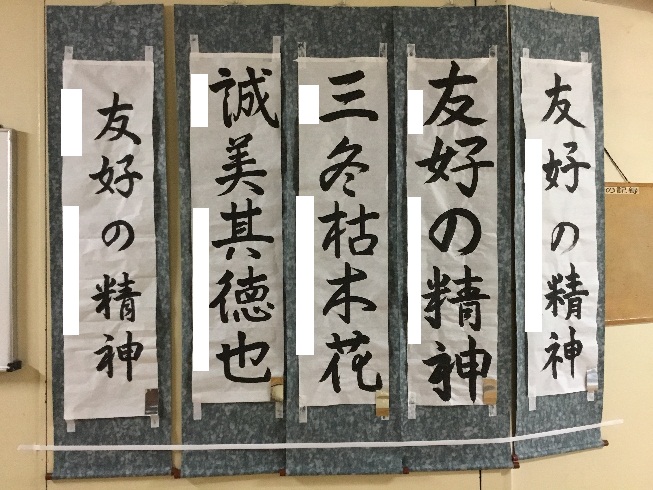 友好の精神
友好の精神
三冬枯木花
誠美其徳也
友好の精神
の記録